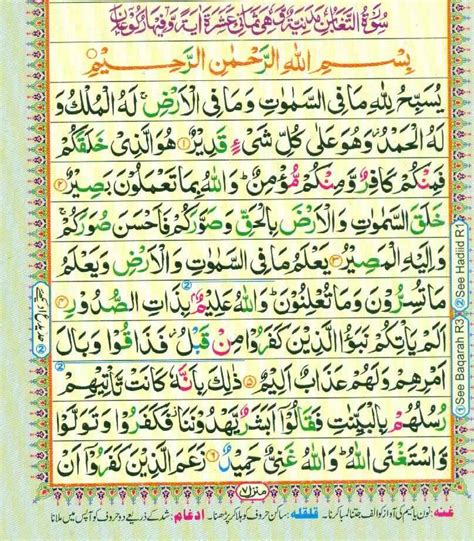 سُوْرَةُ التَّغَابُنِ مَدَنِيَّةٌ وَّهِيَ ثَمَانِيَ عَشْرَةَ اٰيَةً وَّفِيْهَا رُكُوْعَانِ
بِسْمِ اللّٰهِ الرَّحْمٰنِ الرَّحِيْمِ
يُسَبِّحُ لِلّٰهِ مَا فِي السَّمٰوٰتِ وَمَا فِي الْاَرْضِ ۚ لَهُ الْمُلْكُ وَ
لَهُ الْحَمْدُ ؗ وَهُوَ عَلٰى كُلِّ شَيْءٍ قَدِيْرٌ ﴿۱﴾ هُوَ الَّذِيْ خَلَقَكُمْ
فَمِنْكُمْ كَافِرٌ وَّمِنْكُمْ مُّؤْمِنٌ ؕ وَاللّٰهُ بِمَا تَعْمَلُوْنَ بَصِيْرٌ ﴿۲﴾
خَلَقَ السَّمٰوٰتِ وَالْاَرْضَ بِالْحَقِّ وَصَوَّرَكُمْ فَاَحْسَنَ صُوَرَكُمْ ۚ
وَاِلَيْهِ الْمَصِيْرُ ﴿۳﴾ يَعْلَمُ مَا فِي السَّمٰوٰتِ وَالْاَرْضِ وَيَعْلَمُ
مَا تُسِرُّوْنَ وَمَا تُعْلِنُوْنَ ؕ وَاللّٰهُ عَلِيْمٌۢ بِذَاتِ الصُّدُوْرِ ﴿۴﴾
اَلَمْ يَاْتِكُمْ نَبَؤُا الَّذِيْنَ كَفَرُوْا مِنْ قَبْلُ ؗ فَذَاقُوْا وَبَالَ
اَمْرِهِمْ وَلَهُمْ عَذَابٌ اَلِيْمٌ ﴿۵﴾ ذٰلِكَ بِاَنَّهٗ كَانَتْ تَّاْتِيْهِمْ
رُسُلُهُمْ بِالْبَيِّنٰتِ فَقَالُوْۤا اَبَشَرٌ يَّهْدُوْنَنَا ؗ فَكَفَرُوْا وَتَوَلَّوْا
وَّاسْتَغْنَى اللّٰهُ ؕ وَاللّٰهُ غَنِيٌّ حَمِيْدٌ ﴿۶﴾ زَعَمَ الَّذِيْنَ كَفَرُوْۤا اَنْ
منزل ۷
غنہ: نون یا میم کی آواز کو الف جتنا لمبا کرنا۔ قلقلہ: ساکن حروف کو ہلا کر پڑھنا۔ ادغام: شد کے ذریعے دو حروف کو آپس میں ملانا
① See Baqarah R3 ② See Hadiid R1
②